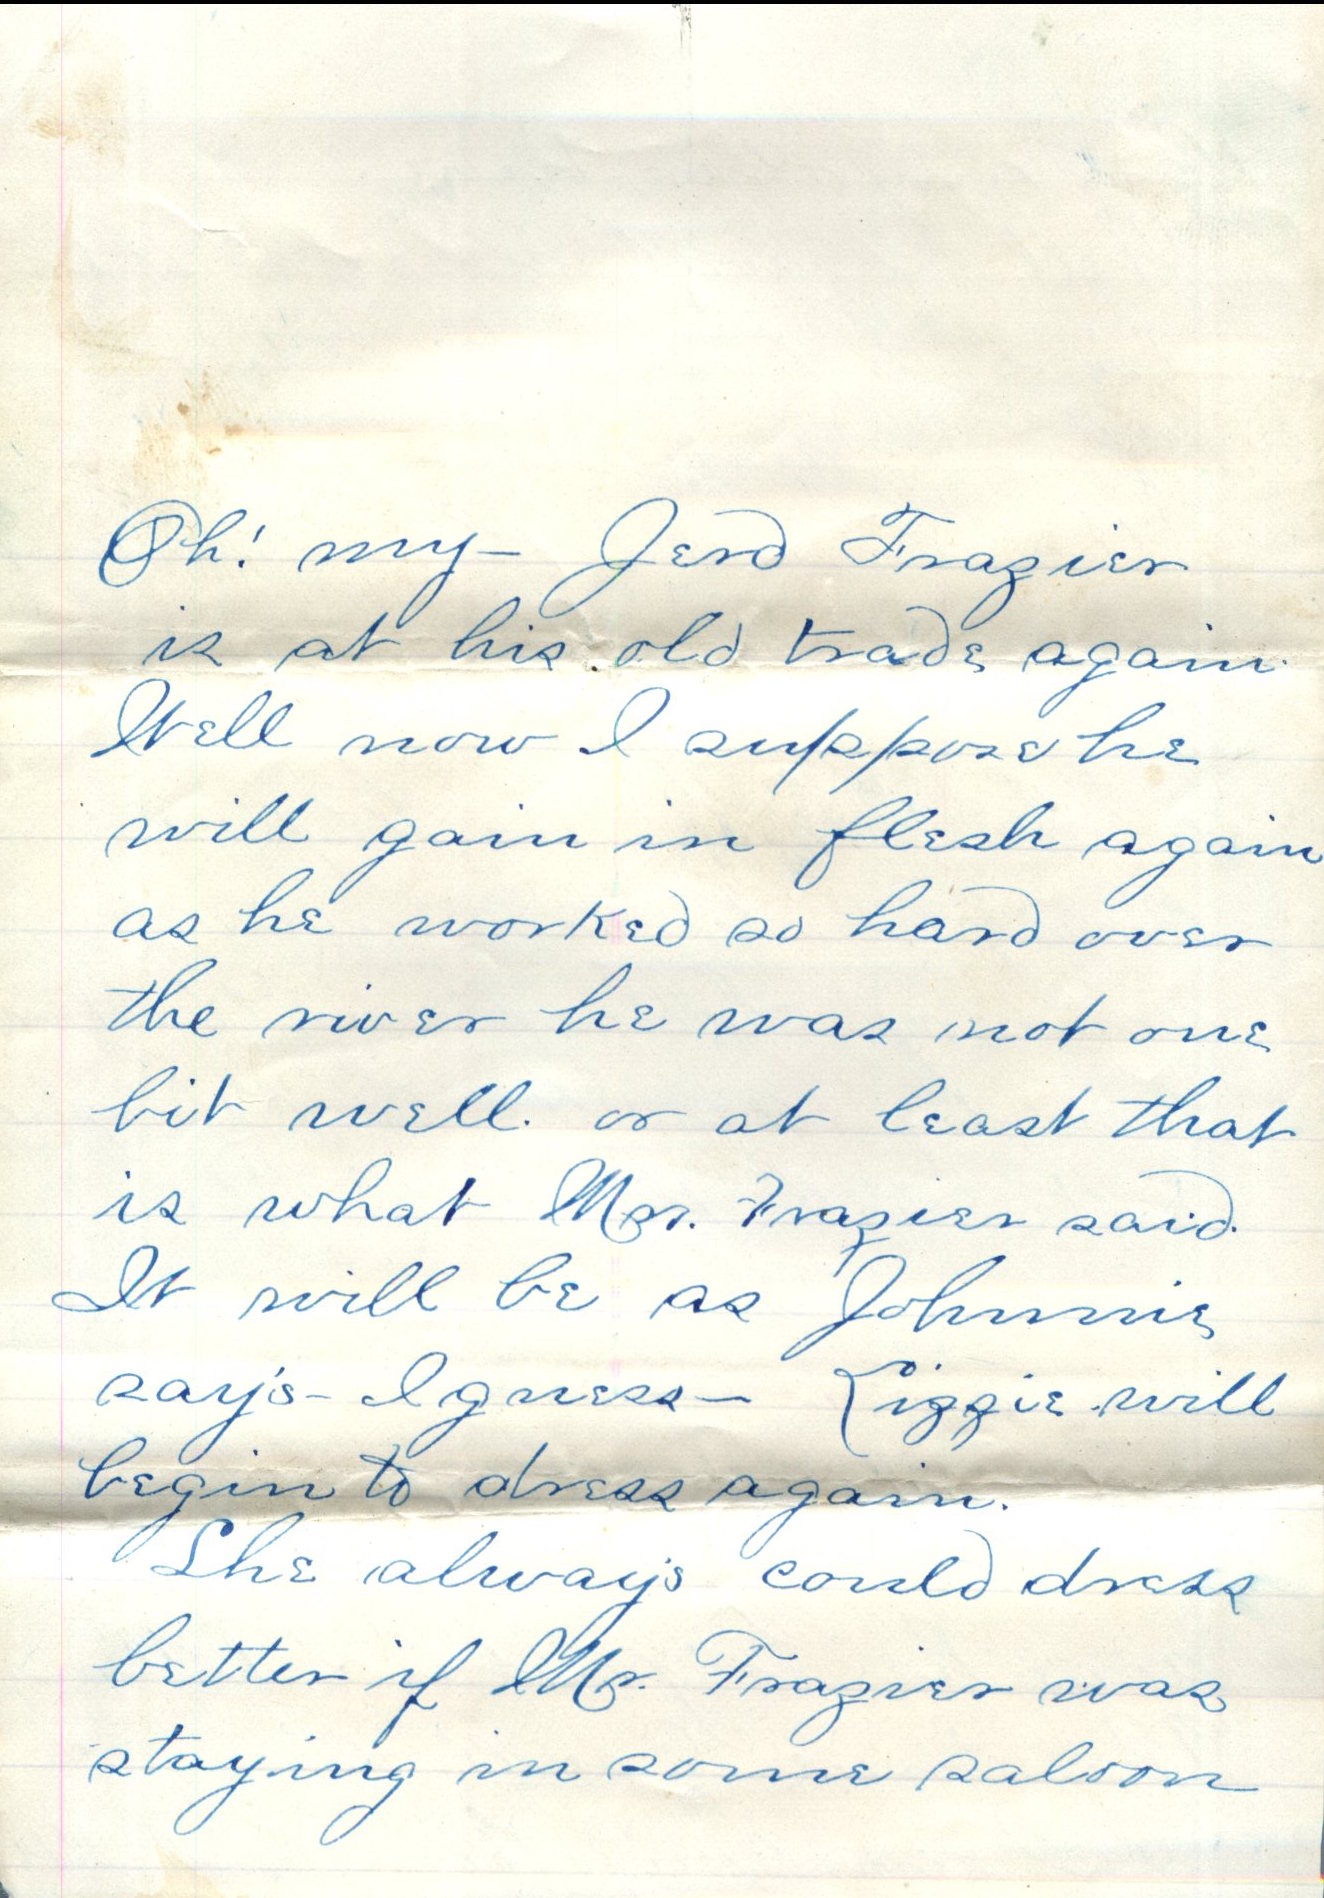 Oh! my— Jerd Frazier
is at his old trade again.
Well now I suppose he
will gain in flesh again
as he worked so hard over
the river he was not one
bit well. or at least that
is what Mrs. Frazier said.
It will be as Johnnie
say's— I guess— Lizzie will
begin to dress again.
She alway's could dress
better if Mr. Frazier was
staying in some saloon